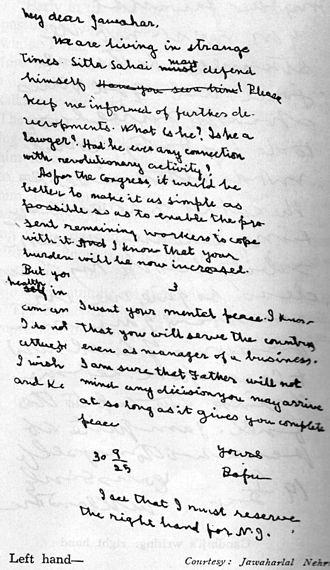 My dear Jawahar,
We are living in strange
times. Sitla Sahai must may defend
himself Have you seen him? Please
keep me informed of further de-
velopments. What is he? Is he a
lawyer? Has he ever any connection
with revolutionary activity?
As for the Congress, it would be
better to make it as simple as
possible so as to enable the pre
sent remaining workers to cope
with it. And I know that your
burden will be now increased.
But you
in
3
I want your mental peace. I know
I do not
that you will serve the country
even as manager of a business.
I wish
I am sure that Father will not
and
mind any decision you may arrive
at so long as it gives you complete
peace
30 9/25
Yours
Bapu
I see that I must reserve
the right hand for N.J.
Left hand—
Courtesy: Jawaharlal Nehr